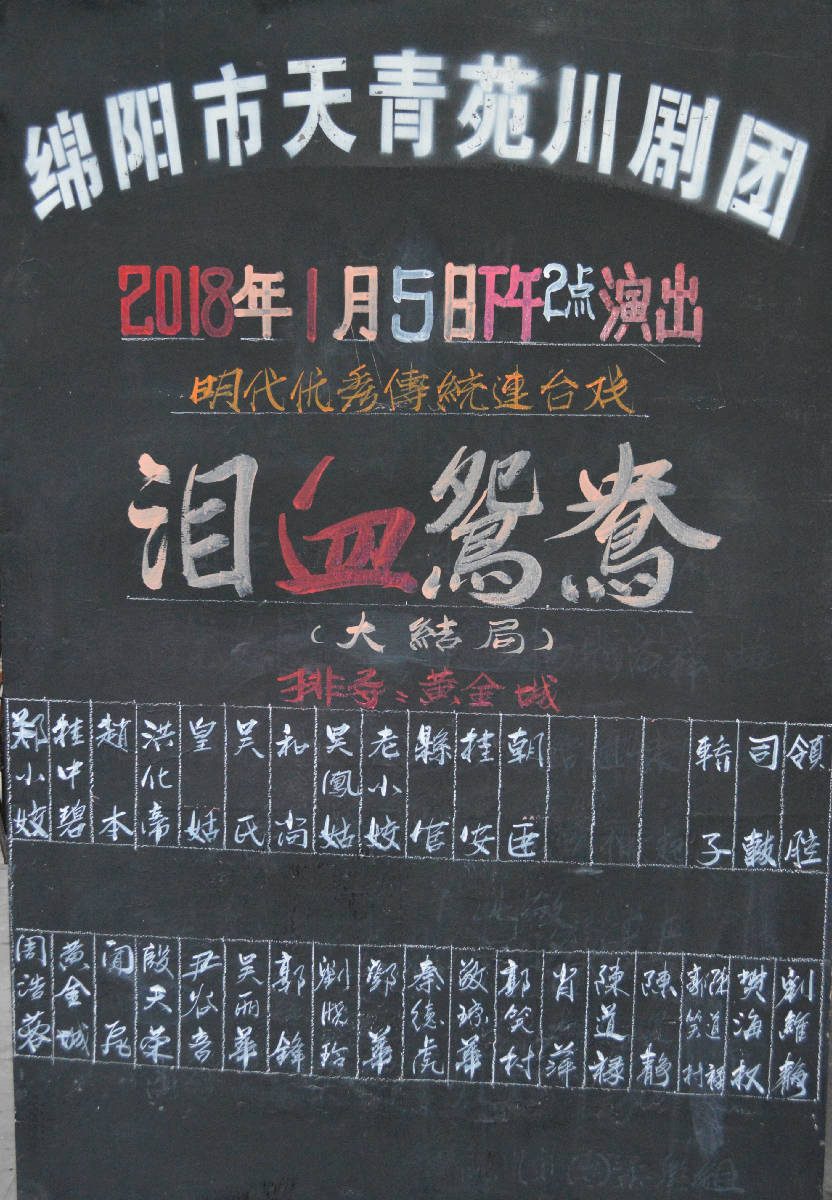 绵阳市天青苑川剧团
2018年1月5日下午2点演出
明代优秀傳統連台戏
泪血鸳鸯
(大結局)
排导:黄金城
郑小姣 桂中碧 趙本 洪化帝 皇姑 吴氏 和尚 吴鳳姑 老小姣 縣官 桂安 朝臣 轎子 司鼓 領腔
周浩蓉 黄金城 殷天荣 吴丽華 郭鋒 劉晓玲 鄧華 秦德虎 敬琼華 郭笑村 肖萍 陳道禄 陳静 郭笑村 陳道禄 樊海权 劉維静